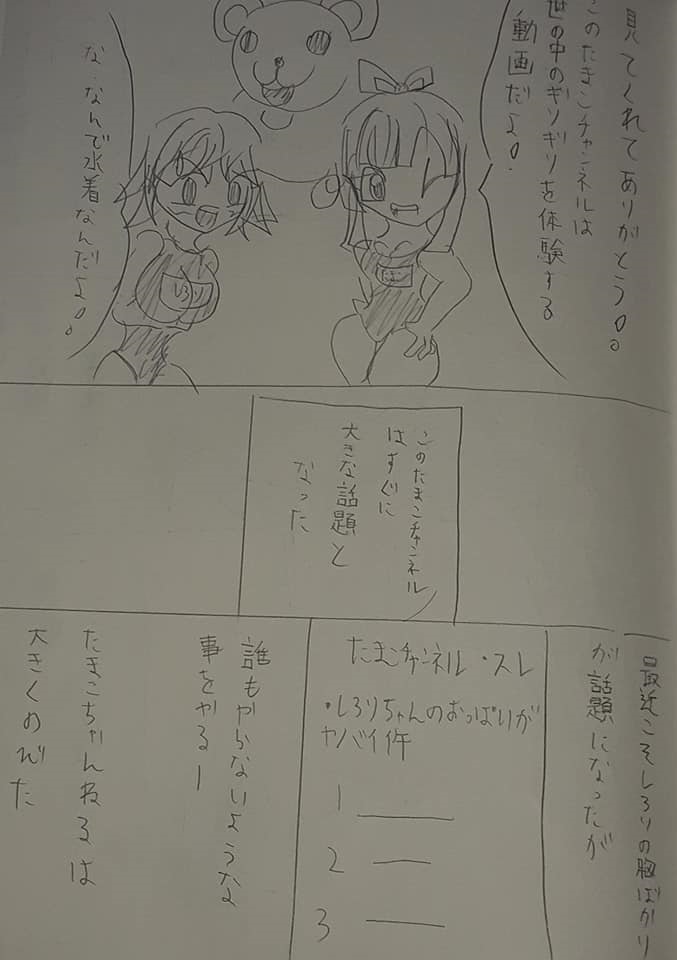 見てくれてありがとう!。
このたまこチャンネルは
世の中のギリギリを体験する
動画だよ!
な、なんで水着なんだよ!。
たまこ
しろり
このたまこチャンネル
はすぐに
大きな話題と
なった
最近こそしろりの胸ばかり
が話題になったが
たまこチャンネル・スレ
・しろりちゃんのおっぱいが
ヤバイ件
1
2
3
誰もやらないような
事をやるー
たまこちゃんねるは
大きくのびた